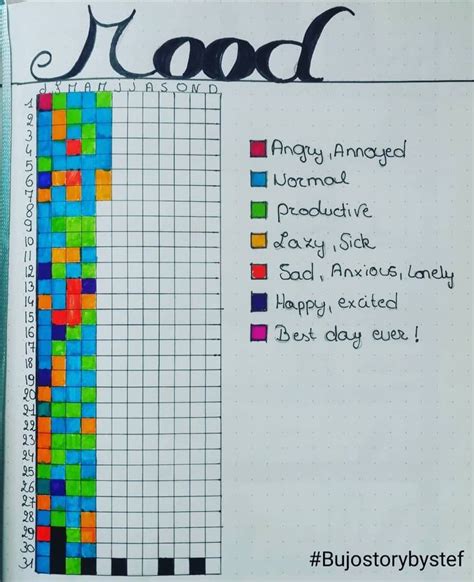 Mood
J F M A M J J A S O N D
1
2
3
4
5
6
7
8
9
10
11
12
13
14
15
16
17
18
19
20
21
22
23
24
25
26
27
28
29
30
31
Angry, Annoyed
Normal
Productive
Lazy, Sick
Sad, Anxious, Lonely
Happy, excited
Best day ever!
#Bujostorybystef